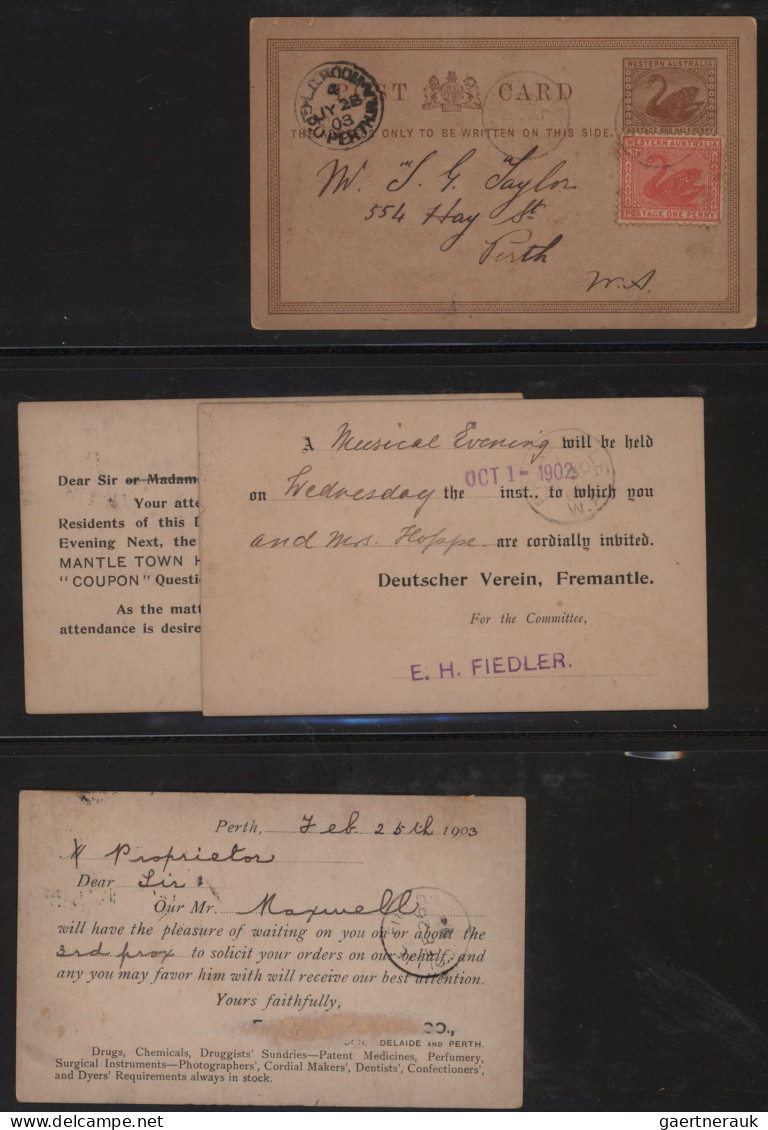 POST CARD
WESTERN AUSTRALIA
POSTAGE ONE HALF PENNY
JY 28
03
PERTH
ONLY TO BE WRITTEN ON THIS SIDE.
WESTERN AUSTRALIA
POSTAGE ONE PENNY
Mr. "S. G. Taylor"
554 Hay St
Perth
W.A.
Dear Sir or Madam
Your atte
Residents of this D
Evening Next, the
MANTLE TOWN H
"COUPON" Questi
As the matt
attendance is desire
A Musical Evening will be held
OCT 1 - 1902
on Wednesday the inst.. to which you
and Mrs. Hoppe are cordially invited.
Deutscher Verein, Fremantle.
For the Committee,
E. H. FIEDLER.
Perth, Feb. 25th 1903
Proprietor
Dear Sir
Our Mr. Maxwell
will have the pleasure of waiting on you on or about the
3rd prox to solicit your orders on our behalf, and
any you may favor him with will receive our best attention.
Yours faithfully,
CO.,
DELAIDE AND PERTH.
Drugs, Chemicals, Druggists' Sundries—Patent Medicines, Perfumery,
Surgical Instruments—Photographers', Cordial Makers', Dentists', Confectioners',
and Dyers' Requirements always in stock.
gaertnerauk